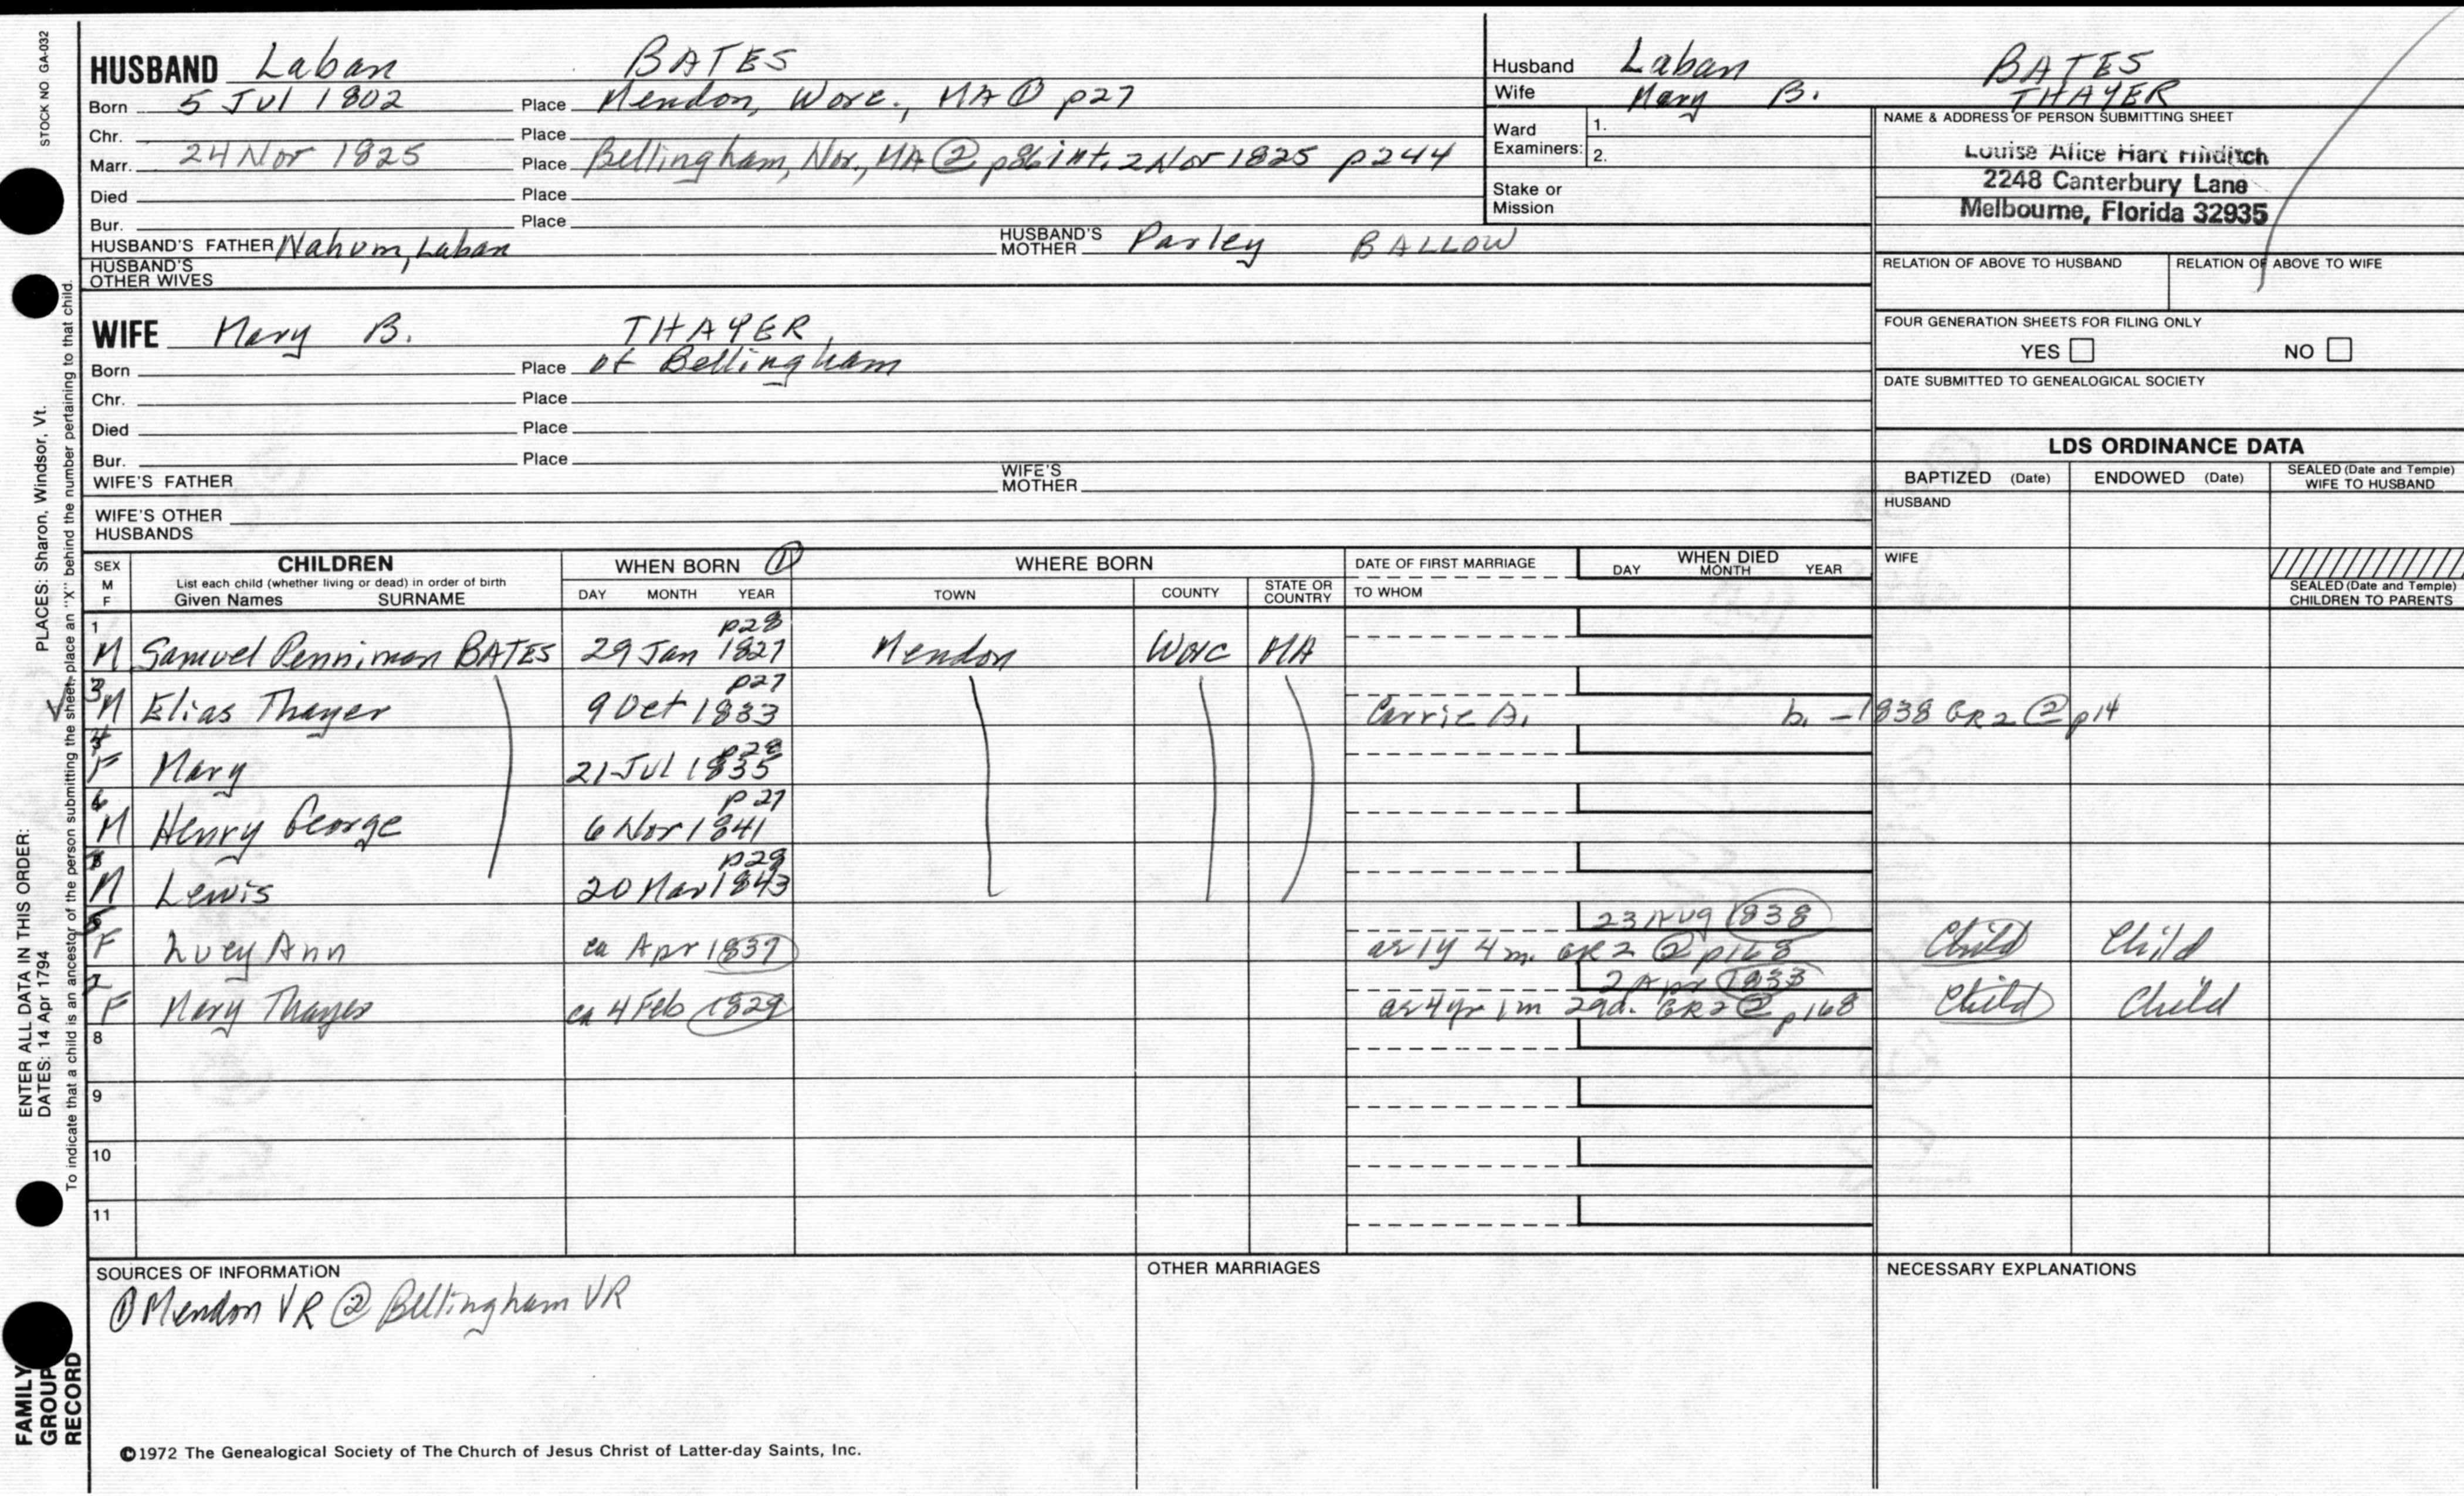 HUSBAND Laban BATES
Born 5 Jul 1802 Place Mendon, Worc., MA ① p27
Chr. Place
Marr. 24 Nov 1825 Place Bellingham, Nor., MA ② p86 int. 2 Nov 1825 p244
Died Place
Bur. Place
HUSBAND'S FATHER Nahum, Laban HUSBAND'S MOTHER Parley BALLOW
HUSBAND'S OTHER WIVES
Husband Laban BATES
Wife Mary B. THAYER
Ward Examiners: 1.
2.
Stake or Mission
NAME & ADDRESS OF PERSON SUBMITTING SHEET
Louise Alice Hart
2248 Canterbury Lane
Melbourne, Florida 32935
RELATION OF ABOVE TO HUSBAND RELATION OF ABOVE TO WIFE
FOUR GENERATION SHEETS FOR FILING ONLY
YES NO
DATE SUBMITTED TO GENEALOGICAL SOCIETY
WIFE Mary B. THAYER
Born Place of Bellingham
Chr. Place
Died Place
Bur. Place
WIFE'S FATHER WIFE'S MOTHER
WIFE'S OTHER HUSBANDS
LDS ORDINANCE DATA
BAPTIZED (Date) ENDOWED (Date) SEALED (Date and Temple) WIFE TO HUSBAND
HUSBAND
WIFE
SEALED (Date and Temple) CHILDREN TO PARENTS
SEX M F CHILDREN WHEN BORN ① WHERE BORN DATE OF FIRST MARRIAGE WHEN DIED
List each child (whether living or dead) in order of birth
Given Names SURNAME DAY MONTH YEAR TOWN COUNTY STATE OR COUNTRY TO WHOM DAY MONTH YEAR
1 p28
M Samuel Penniman BATES 29 Jan 1827 Mendon Worc MA
3 p27
M Elias Thayer 9 Oct 1833 Carrie A. b. – 1838 GR2 ② p14
4 p28
F Mary 21 Jul 1835
6 p27
M Henry George 6 Nov 1841
p29
M Lewis 20 Mar 1843
5 23 Aug 1838
F Lucy Ann ca Apr 1837 as 1y 4m. GR2 ② p168 Child Child
2 2 Apr 1833
F Mary Thayer ca 4 Feb 1829 as 4yr 1m 29d. GR2 ② p168 Child Child
8
9
10
11
SOURCES OF INFORMATION OTHER MARRIAGES NECESSARY EXPLANATIONS
① Mendon VR ② Bellingham VR
©1972 The Genealogical Society of The Church of Jesus Christ of Latter-day Saints, Inc.
STOCK NO. GA-032
ENTER ALL DATA IN THIS ORDER: PLACES: Sharon, Windsor, Vt.
DATES: 14 Apr 1794
To indicate that a child is an ancestor of the person submitting the sheet, place an "X" behind the number pertaining to that child.
FAMILY GROUP RECORD